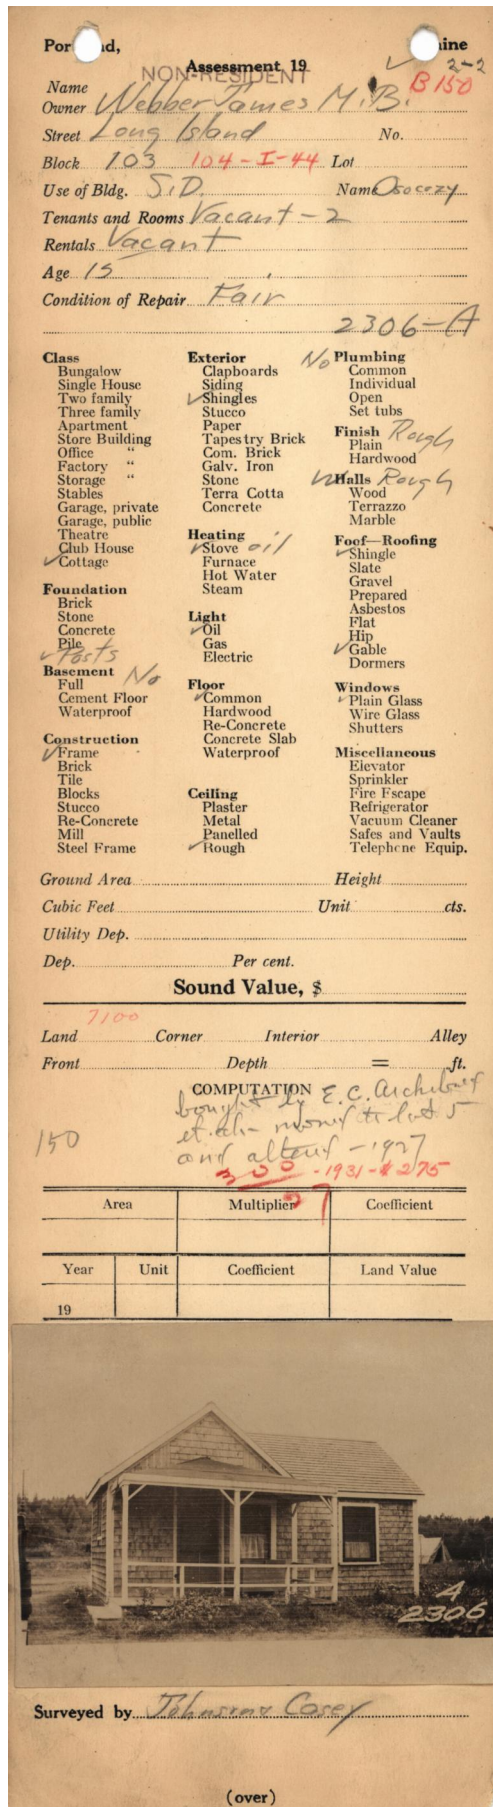 Por nd, aine
Assessment 19 2-2
NON-RESIDENT B 150
Name
Owner Webber James M. B.
Street Long Island No.
Block 103 104-I-44 Lot
Use of Bldg. S.D. Name Osocozy
Tenants and Rooms Vacant-2
Rentals Vacant
Age 15
Condition of Repair Fair
2306-A
Class
Bungalow
Single House
Two family
Three family
Apartment
Store Building
Office "
Factory "
Storage "
Stables
Garage, private
Garage, public
Theatre
Club House
✓ Cottage
Foundation
Brick
Stone
Concrete
Pile
✓ Posts
Basement No
Full
Cement Floor
Waterproof
Construction
✓ Frame
Brick
Tile
Blocks
Stucco
Re-Concrete
Mill
Steel Frame
Exterior
Clapboards
Siding
✓ Shingles
Stucco
Paper
Tapestry Brick
Com. Brick
Galv. Iron
Stone
Terra Cotta
Concrete
Heating
✓ Stove oil
Furnace
Hot Water
Steam
Light
✓ Oil
Gas
Electric
Floor
✓ Common
Hardwood
Re-Concrete
Concrete Slab
Waterproof
Ceiling
Plaster
Metal
Panelled
✓ Rough
No Plumbing
Common
Individual
Open
Set tubs
Finish Rough
Plain
Hardwood
Halls Rough
Wood
Terrazzo
Marble
Foof—Roofing
✓ Shingle
Slate
Gravel
Prepared
Asbestos
Flat
Hip
✓ Gable
Dormers
Windows
✓ Plain Glass
Wire Glass
Shutters
Miscellaneous
Elevator
Sprinkler
Fire Escape
Refrigerator
Vacuum Cleaner
Safes and Vaults
Telephone Equip.
Ground Area Height
Cubic Feet Unit cts.
Utility Dep.
Dep. Per cent.
Sound Value, $
7100
Land Corner Interior Alley
Front Depth = ft.
COMPUTATION
bought by E. C.
et al - moved to lot 5
150 and - 1927
300 - 1931 - $275
Area Multiplier Coefficient
Year Unit Coefficient Land Value
19
A
2306
Surveyed by Johnson & Casey
(over)